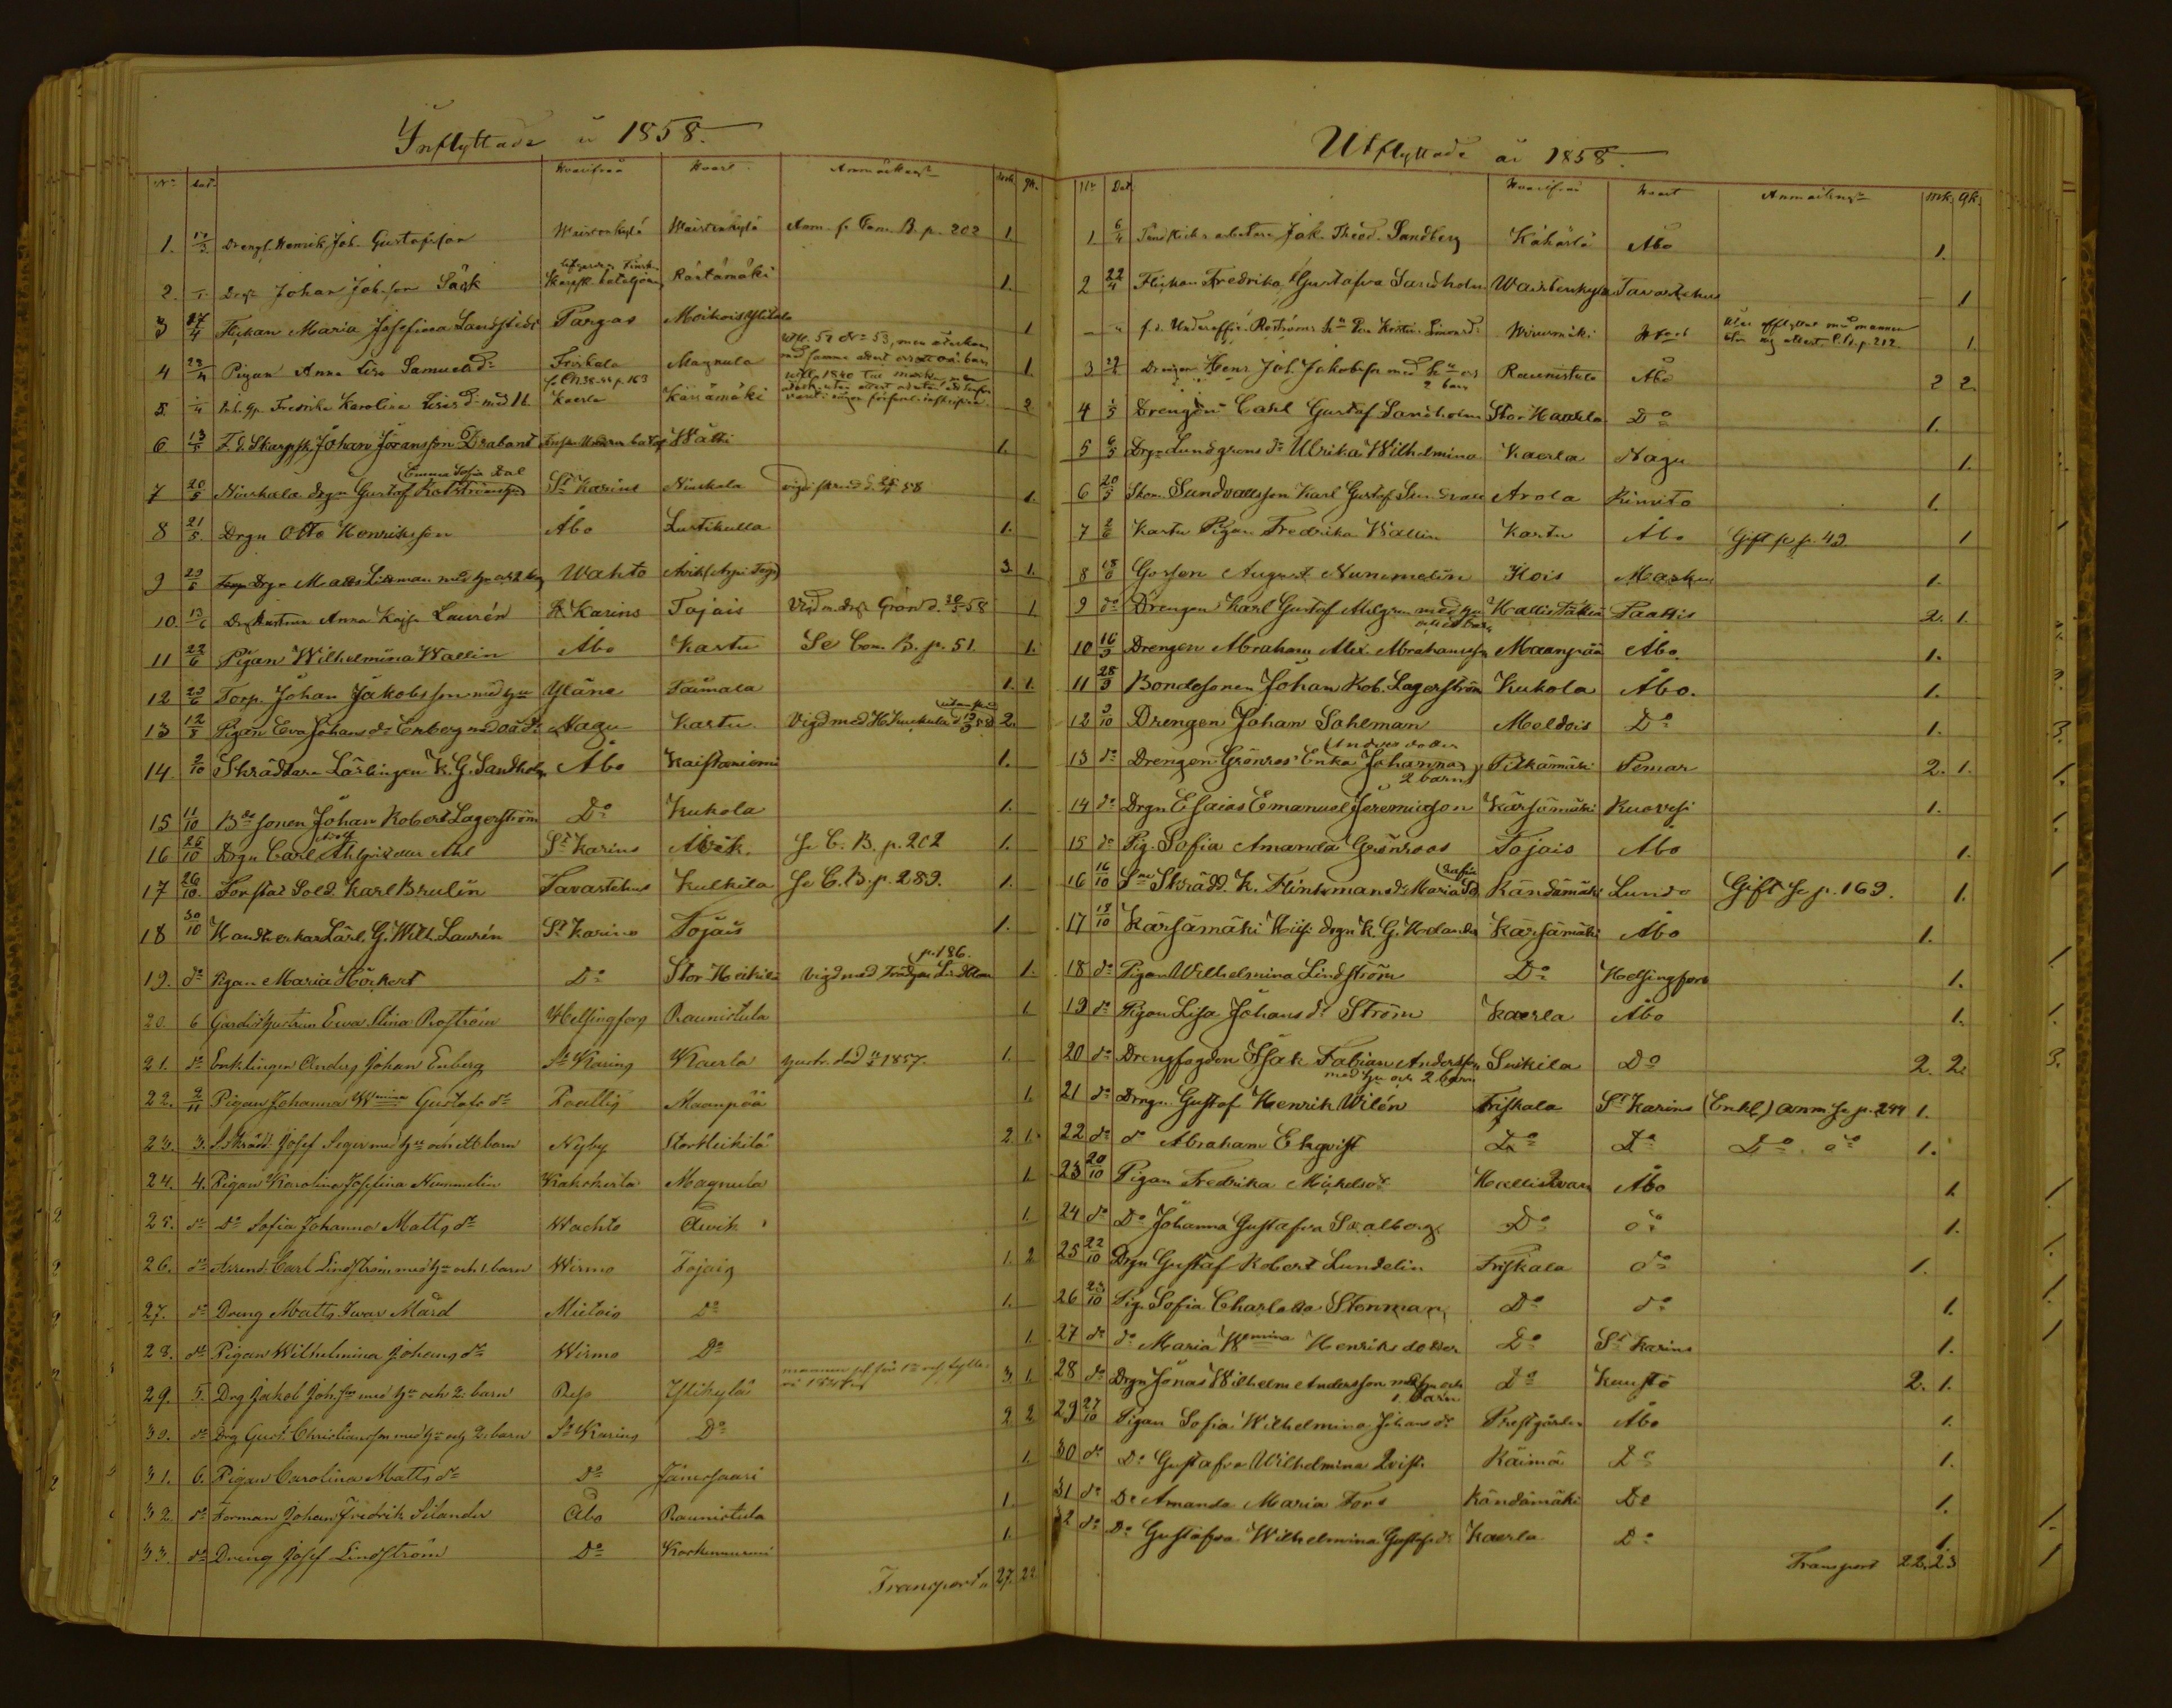 Inflyttade år 1858.
No Dat. Hvarifrån Hvart Anmärkngr mk. qk.
1. Drengn Henrik Joh. Gustafsson Waistenkylä Waistenkylä Anm. se Com. B. p. 202 1.
2. Johan Johsson Säck Räntämäki 1.
3 27/4 Flickan Maria Josefina Landstedt Pargas Moikois 1
4 Pigan Anna Lisa Samuelsdr Friskala Magnula
5 Fredrika Karolina Kaerla Kärsämäki 2
6 13/5 F.d. Skarpsk. Johan Jöransson Drabant Wätti 1.
Emma Sofia
7 20/5 Niuskala drgn Gustaf St Karins Niuskala 1.
8 21/5 Drgn Otto Henriksson Åbo Lustikulla 1.
9 Drgn Matts Littman med hu och 2 Wahto 3 1.
10. 13/6 Anna Kajsa Laurén St Karins Tojais Vigd m. drgn Grön d. 30/5 58 1
11 22/6 Pigan Wilhelmina Wallin Åbo Kartu Se Com. B. p. 51 1.
12 Torp. Johan Jakobsson med hu Yläne Taimala 1. 1.
13 12/8 Pigan Eva Johansdr Enberg med Nagu Kartu. Vigd med 2.
14. 2/10 Skräddare Lärlingen K. G. Sandholm Åbo Kaistarniemi 1.
15 11/10 Bde sonen Johan Robert Lagerström Do Kukola 1.
16 26/10 Drgn Carl Ahlqvist eller Ahl St Karins Alvik. Se C. B. p. 202 1.
17 26/10. Förstad Sold. Karl Brulin Tavastehus Kulkila Se C. B. p. 289. 1.
18 30/10 Handtverkar Lärl. G. Wilh. Laurén St Karins Tojais 1.
p. 186.
19. do Pigan Maria Hörkert Do Stor Heikilä Vigd med Lindblom 1.
20. 6 Gardist hustrun Ewa Stina Roström Helsingfors Raunistula 1
21. do Enklingen Anders Johan Enberg St Karins Kaerla hustr. död 1857. 1.
22. 2/11 Pigan Johanna Wmina Gustafs dr Paattis Maanpää 1.
23. 3. Skrädd. Josef Seger med hu och ett barn Nyby Stor Heikilä 2 1.
24. 4. Pigan Karolina Josefina Nummelin Kakskerta Magnula 1
25. do Do Sofia Johanna Matts dr Wachto Alvik 1.
26. do Arrend. Carl Lindström med hu och 1. barn Wirmo Tojais 1. 2
27. do Dreng Matts Iwar Mård Mietois Do 1.
28. do Pigan Wilhelmina Johans dr Wirmo Do 1
29. 5. Drg Jakob Johsson med hu och 2. barn Reso Ylikylä 3 1.
30. do Drg Gust. Christiansson med hu och 2. barn St Karins Do 2 2
31. 6. Pigan Carolina Matts dr Do Jänessaari 1
32. do Forman Johan Fredrik Silander Åbo Raunistula 1.
33. do Dreng Josef Lindström Do Koskennurmi 1.
Transport 27. 22.
Utflyttade år 1858.
No Dat Hvarifrån Hvart Anmärkngr mk. qk.
1. 6/4 arbetare Jak. Theod. Sandberg Kähärlä Åbo 1.
2 22/4 Flickan Fredrika Gustafva Sandholm Waistenkylä Tavastehus 1
f.d. Underoffic. Roströms Wiurumäki 1.
3 Drengen Henr. Joh. Jakobsson med hu och 2 barn Raunistula Åbo 2 2.
4 1/5 Drengen Carl Gustaf Sandholm Stor Heikkilä Do 1.
5 6/5 Drgn Lundgrens dr Ulrika Wilhelmina Kaerla Nagu 1.
6 20/5 Sundvallsson Karl Gustaf Arola Kimito 1.
7 2/6 Kartu Pigan Fredrika Wallin Kartu Åbo Gift se p. 49 1
8 Gossen August Nummelin Hois Masku 1.
9 do Drengen Karl Gustaf Milgren med hu Hallis Paattis 2. 1.
10 16/9 Drengen Abraham Alex. Abrahamsson Maanpää Åbo. 1.
11 28/9 Bondesonen Johan Rob. Lagerström Kukola Åbo. 1.
12 2/10 Drengen Johan Sahlman Moldois Do 1.
Anders dotter
13 do Drengen Grönros' Enka Johanna, 2 barn Pitkämäki Pemar 2. 1.
14 do Drgn Esaias Emanuel Jeremiasson Kärsämäki Kuovesi 1.
15 do Pig. Sofia Amanda Grönroos Tojais Åbo 1.
16 16/10 Skrädd. K. Flinkmans dr Maria Räntämäki Lundo Gift se p. 169. 1.
17 18/10 Kärsämäki Hus drgn K. G. Kärsämäki Åbo 1.
18 do Pigan Wilhelmina Lindström Do Helsingfors 1.
19 do Pigan Lisa Johans dr Ström Kaerla Åbo 1.
20 do Drengfogden Isak Fabian Andersson med hu och 2 barn Suikila Do 2. 2.
21 do Drngn Gustaf Henrik Wilén Friskala St Karins (Enkl) anm se p. 244 1.
22 do do Abraham Ekqvist Do Do Do do 1.
23 20/10 Pigan Fredrika Mickelsdr Halliskvarn Åbo 1.
24 do Do Johanna Gustafva Sealborg Do do 1.
25 22/10 Drgn Gustaf Robert Lundelin Friskala do 1.
26 Pig. Sofia Charlotta Stenman Do do 1.
27 do do Maria Wmina Henriks dotter Do St Karins 1.
28 do Drgn Jonas Wilhelm Andersson med hu och 1. barn Do Kuustö 2. 1.
29 27/10 Pigan Sofia Wilhelmina Johans dr Prestgården Åbo 1.
30 do Do Gustafva Wilhelmina Qvist. Räimä Do 1.
31 do Do Amanda Maria Fors Räntämäki Do 1.
32 do Do Gustafva Wilhelmina Gustafsdr Kaerla Do 1.
Transport 22. 23